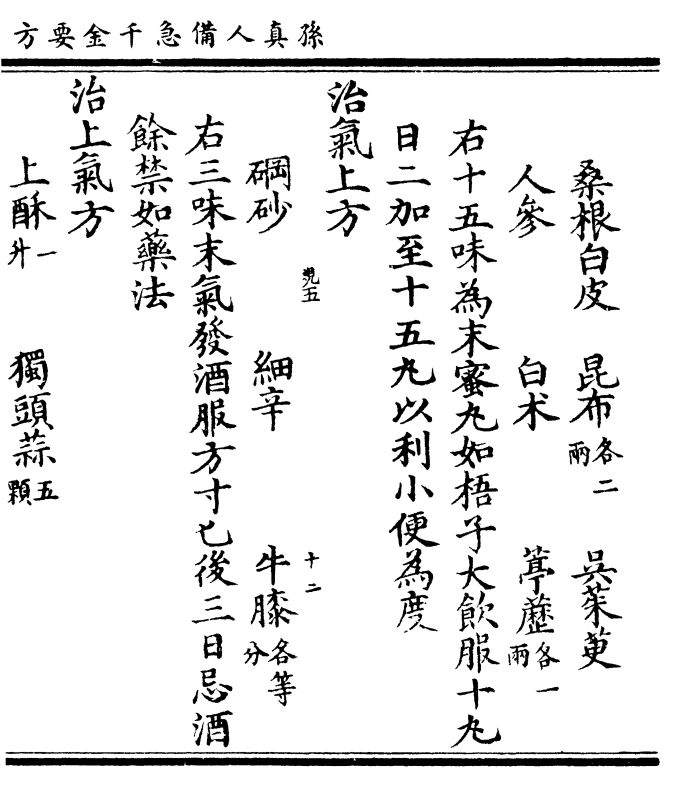 孫真人備急千金要方
桑根白皮 昆布各二兩 吳茱萸
人參 白术 葶藶各一兩
右十五味為末蜜丸如梧子大飲服十丸
日二加至十五丸以利小便為度
治氣上方
硇砂 細辛 牛膝各等分
右三味末氣發酒服方寸匕後三日忌酒
餘禁如藥法
治上氣方
上酥一升 獨頭蒜五顆